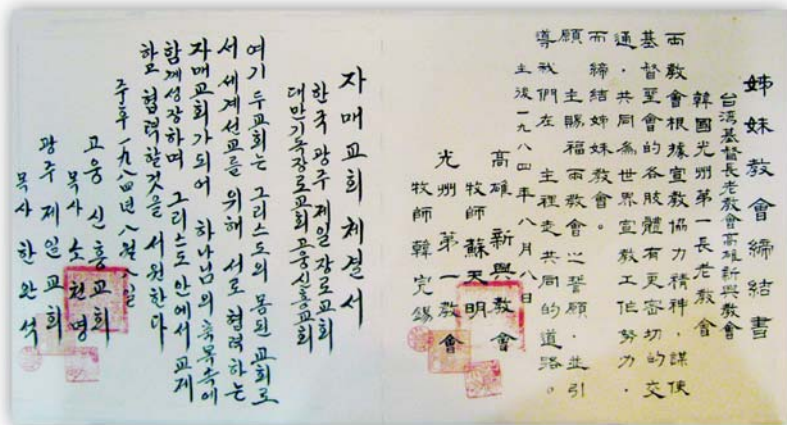 姊妹教會締結書
台湾基督長老教會高雄新興教會
韓國光州第一長老教會
両教會根據宣教協力精神，謀使
基督聖會的各肢體有更密切的交
通，共同為世界宣教工作努力，
而締結姊妹教會。
願 主賜福兩教會之誓願，並引
導我們在 主裡走共同的道路。
主後一九八四年八月八日
高雄 新興教會
牧師 蘇天明
光州 第一教會
牧師 韓完錫
자매교회 체결서
한국 광주 제일 장로교회
대만기독장로교회고웅신흥교회
여기 두교회는 그리스도의 몸된 교회로
서 세계선교를 위해 서로 협력하는
자매교회가되어 하나님의 축복속에
함께성장하며 그리스도 안에서 교제
하고 협력할것을 서원한다
주후 一九八四년 八월 八일
고웅 신흥교회
목사 소천명
광주 제일교회
목사 한완석